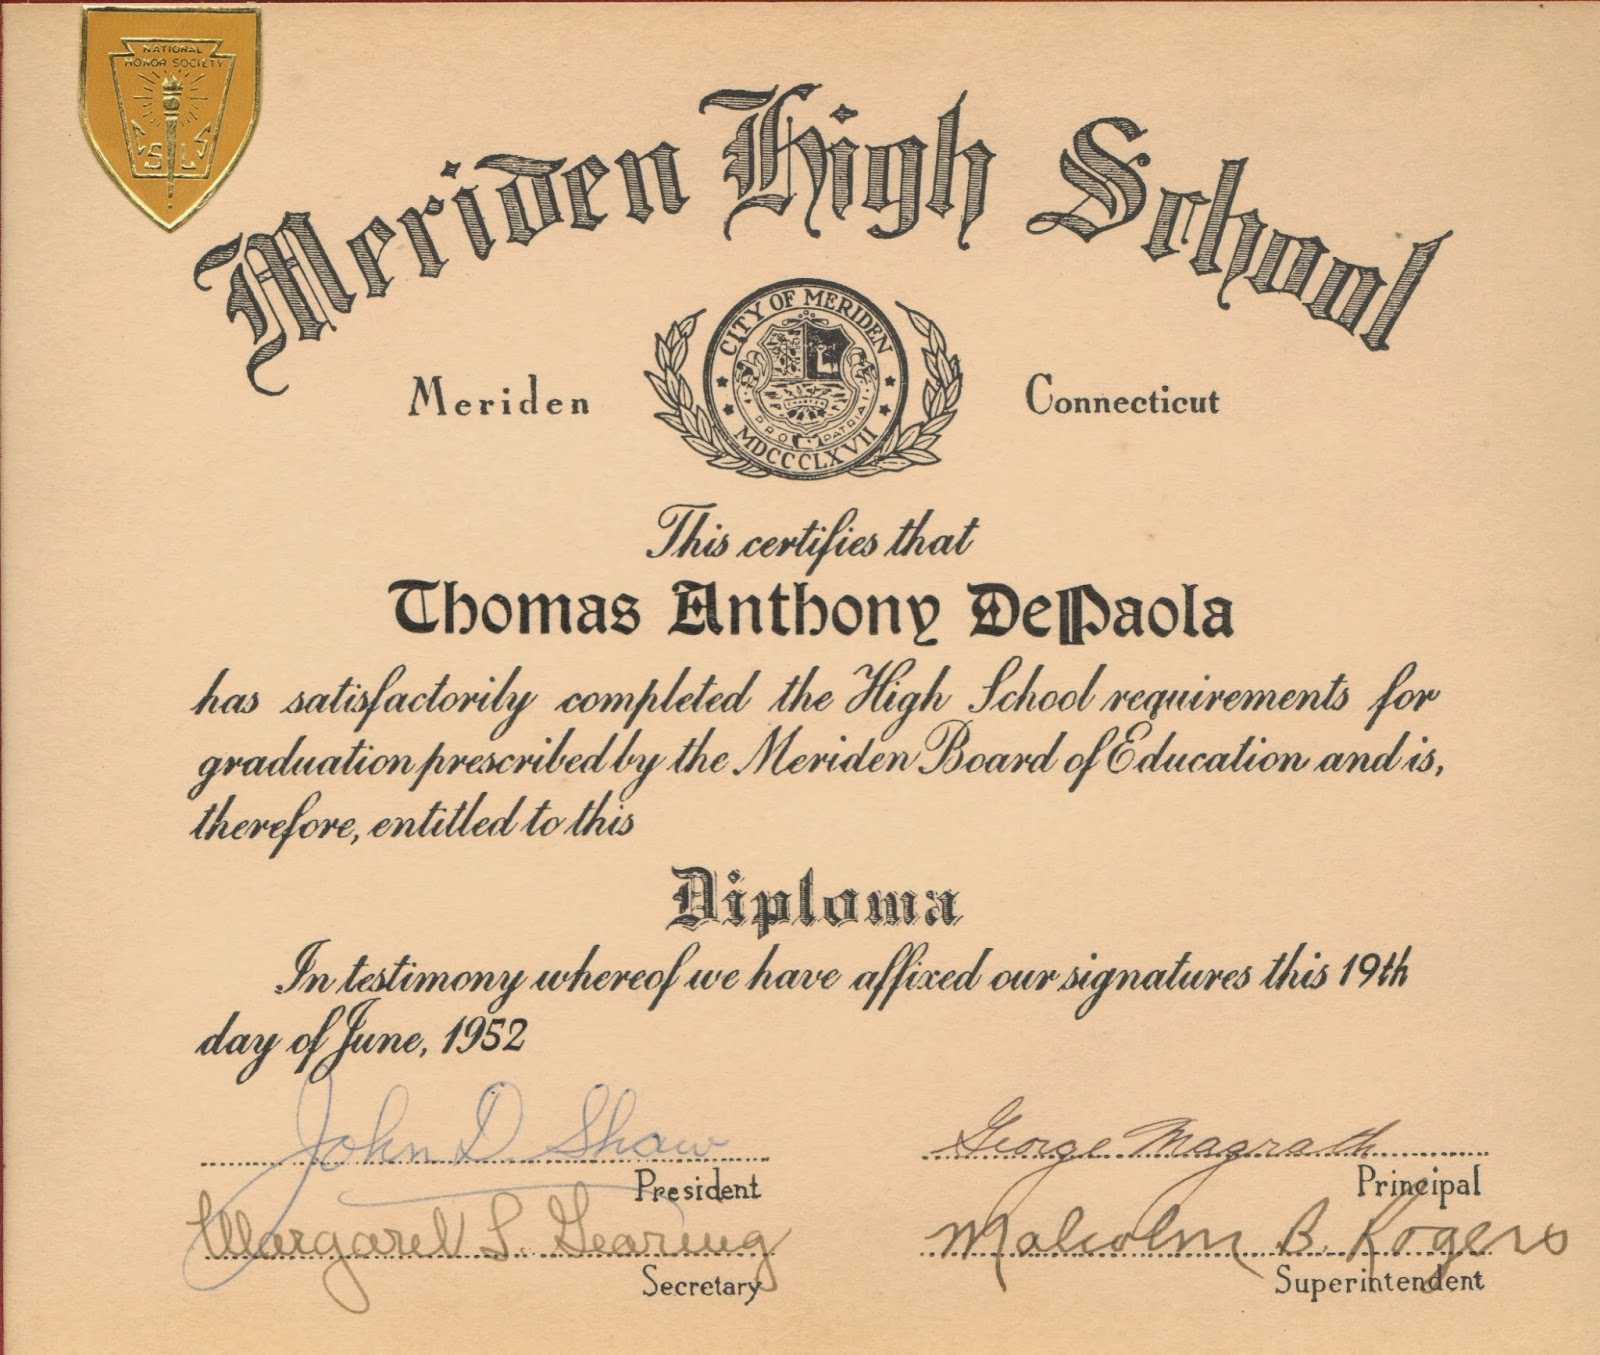 NATIONAL
HONOR SOCIETY
S L S
Meriden High School
CITY OF MERIDEN
Meriden Connecticut
PRO PATRIA
MDCCCLXVII
This certifies that
Thomas Anthony DePaola
has satisfactorily completed the High School requirements for
graduation prescribed by the Meriden Board of Education and is,
therefore, entitled to this
Diploma
In testimony whereof we have affixed our signatures this 19th
day of June, 1952
John D. Shaw George Magrath
President Principal
Margaret S. Gearing Malcolm B. Rogers
Secretary Superintendent